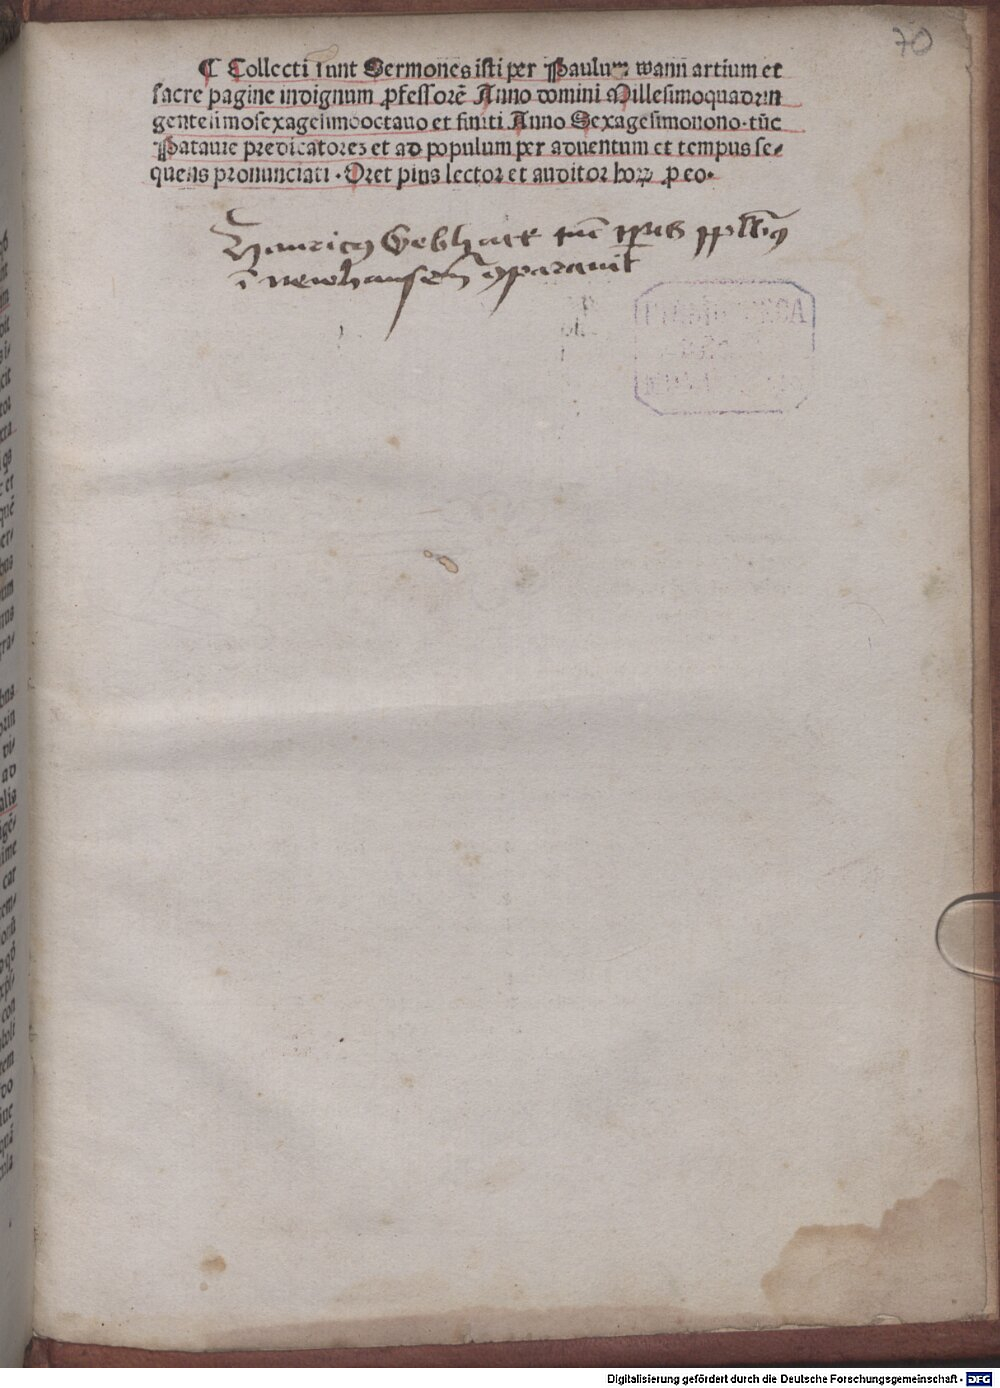 70
⁋ Collecti sunt Sermones isti per Paulum wann artium et
sacre pagine indignum ꝓfessorē Anno domini Millesimoquadrin
gentesimosexagesimooctauo et finiti Anno Sexagesimonono·tūc
Patauie predicatorez et ad populum per aduentum et tempus se⸗
quens pronunciati·Oret pius lector et auditor horꝝ ꝓ eo·
Hanricꝯ Gebhart
ī newhausen ꝯparauit
Digitalisierung gefördert durch die Deutsche Forschungsgemeinschaft - DFG